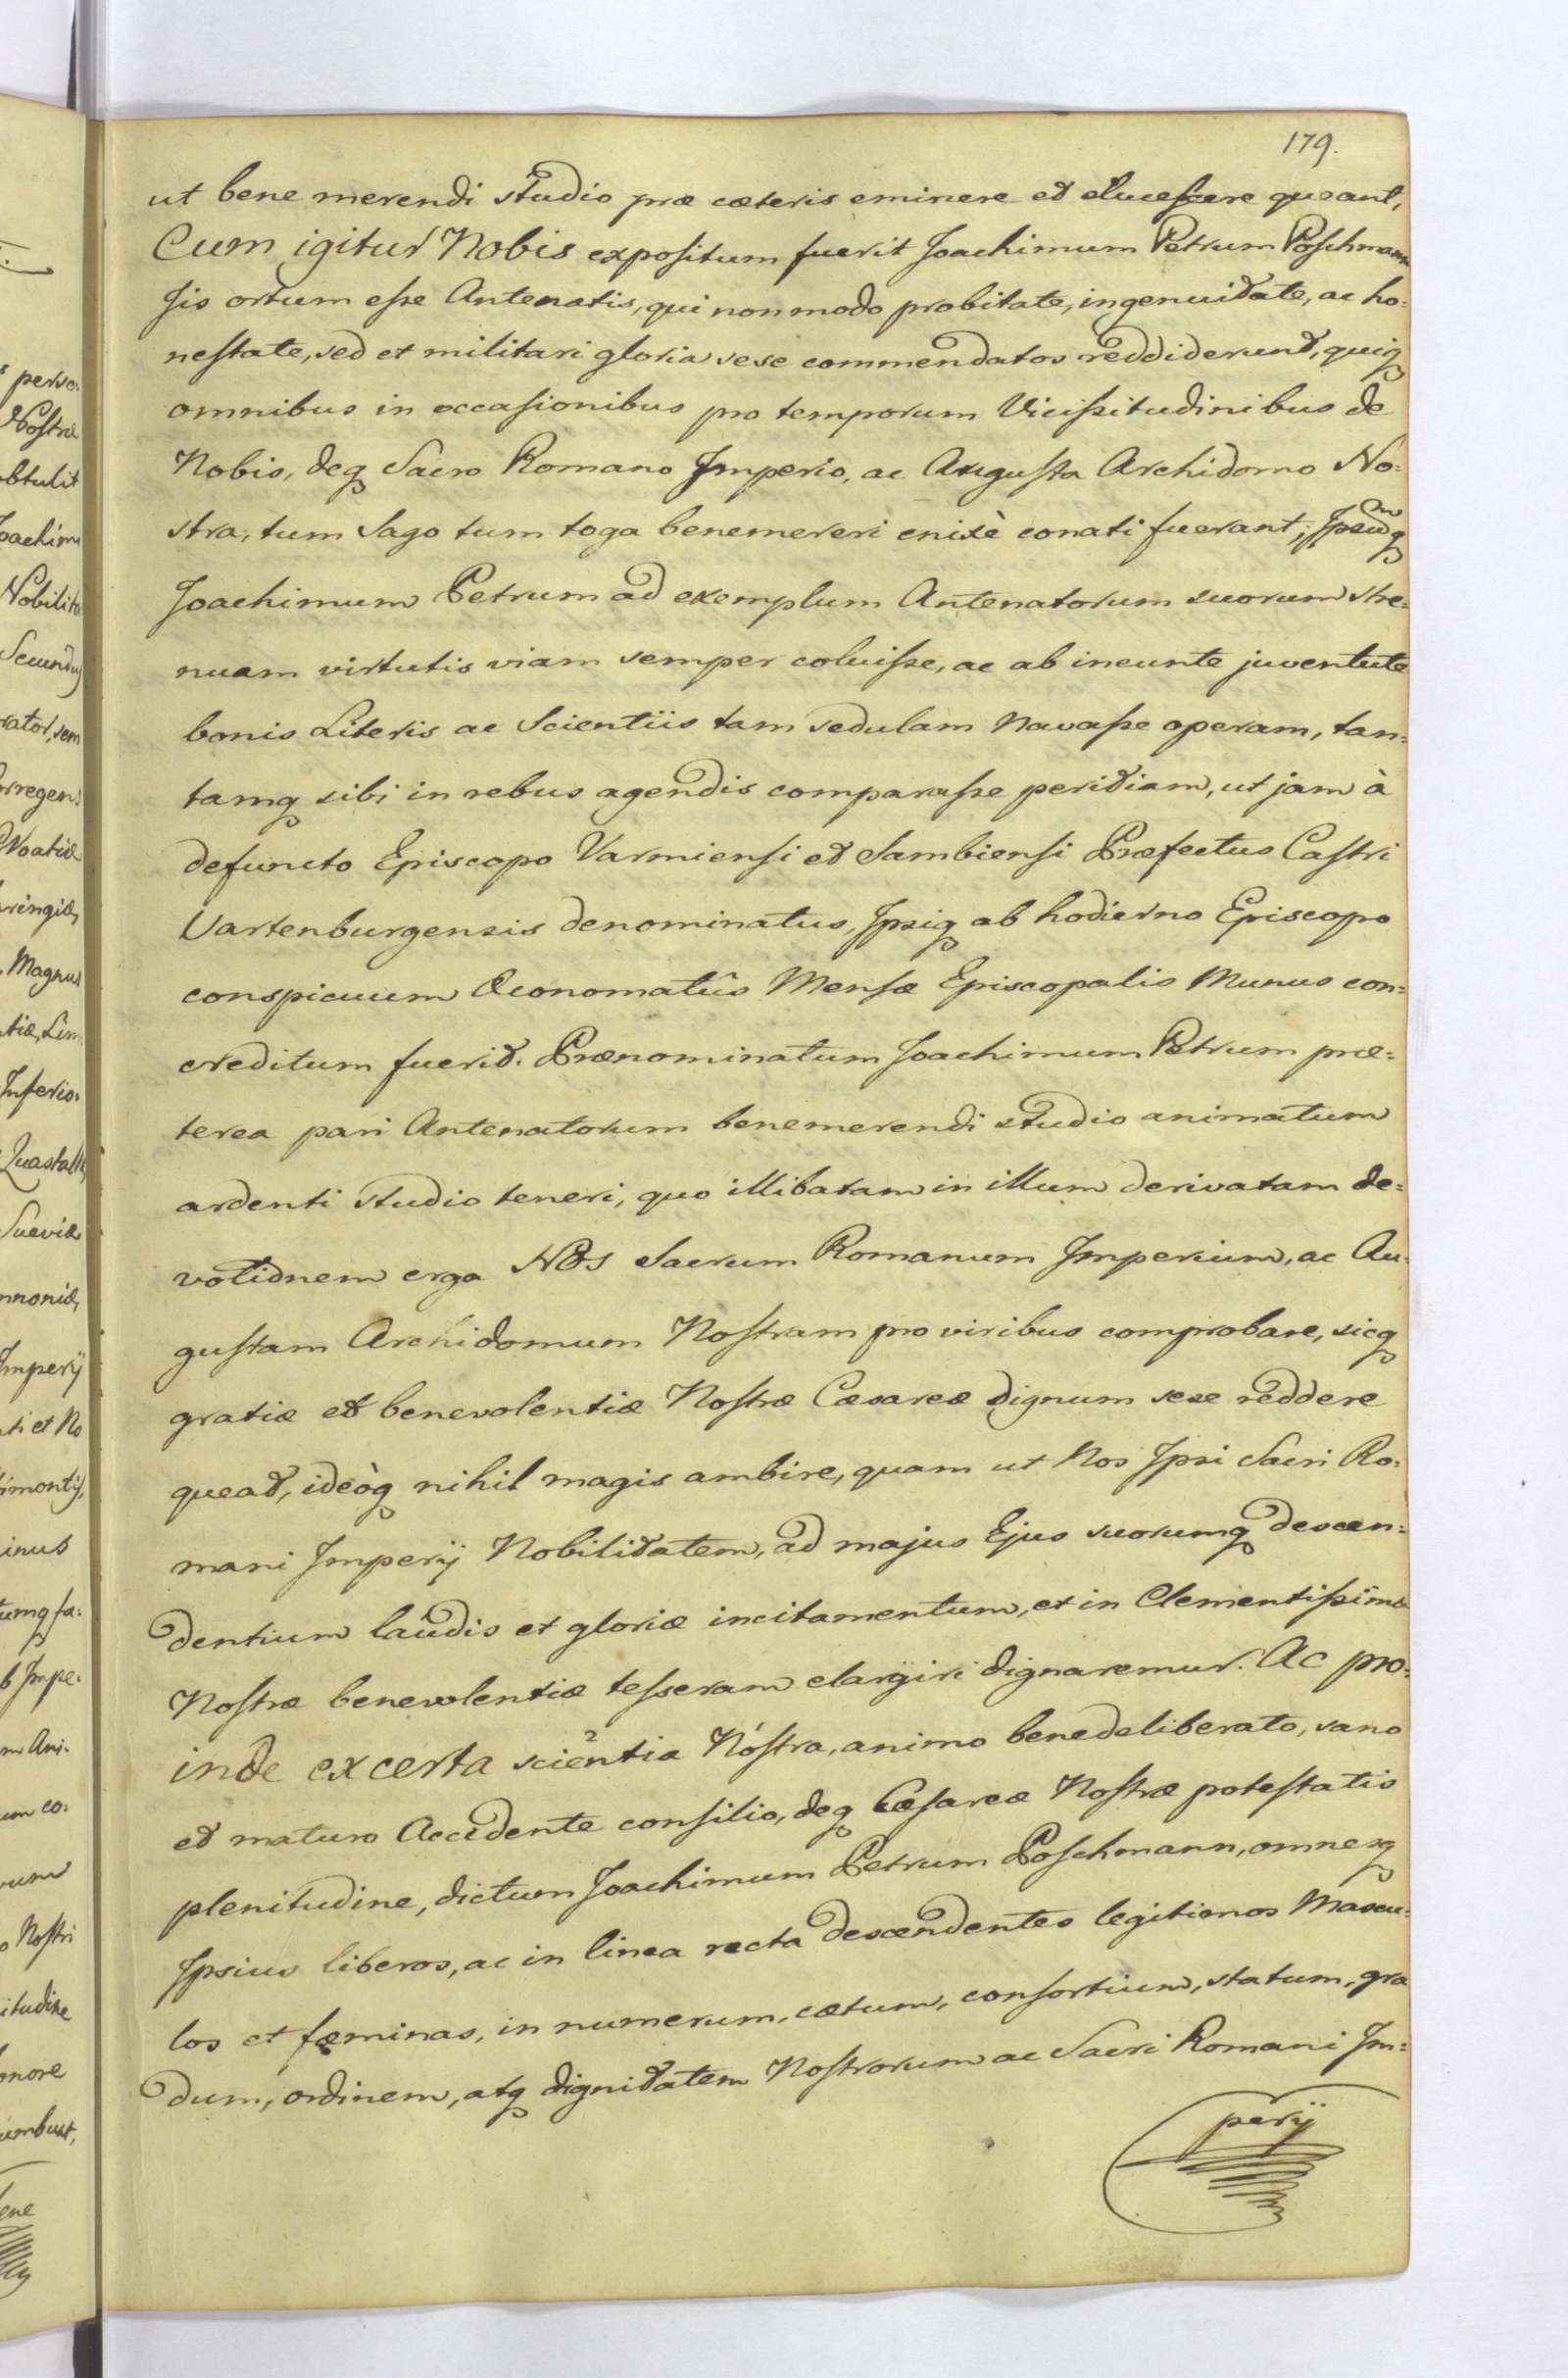 179.
ut bene merendi studio præ cæteris eminere et elucescere queant,
Cum igitur Nobis expositum fuerit Joachimum Petrum Poschmann
sis ortum esse Antenatis, qui non modo probitate, ingenuitate, ac ho=
nestate, sed et militari gloria sese commendatos reddiderunt, quiq
omnibus in occasionibus pro temporum Vicissitudinibus de
Nobis, deq Sacro Romano Imperio, ac Augusta Archidomo No=
stra, tum Sago tum toga benemereri enixè conati fuerant; Ipsumq
Joachimum Petrum ad exemplum Antenatorum suorum stre=
nuam virtutis viam semper coluisse, ac ab ineunte juventute
bonis Literis ac Scientiis tam sedulam Navasse operam, tan=
tamq sibi in rebus agendis comparasse peritiam, ut jam à
defuncto Episcopo Varmiensi et Sambiensi Præfectus Castri
Vartenburgensis denominatus, Ipsiq ab hodierno Episcopo
conspicuum Œconomatûs Mensæ Episcopalis Munus con=
creditum fuerit. Prænominatum Joachimum Petrum præ=
terea pari Antenatorum benemerendi studio animatum
ardenti studio teneri, quo illibatam in illum derivatam de=
votionem erga Nos Sacrum Romanum Imperium, ac Au=
gustam Archidomum Nostram pro viribus comprobare, sicq
gratiæ et benevolentiæ Nostræ Cæsareæ dignum sese reddere
queat, ideòq nihil magis ambire, quam ut Nos Ipsi Sacri Ro=
mani Imperij Nobilitatem, ad majus Ejus suorumq descen=
dentium laudis et gloriæ incitamentum, et in Clementissimæ
Nostræ benevolentiæ tesseram elargiri dignaremur. Ac pro=
inde ex certa scientia Nostra, animo benedeliberato, sano
et maturo Accedente consilio, deq Cæsareæ Nostræ potestatis
plenitudine, dictum Joachimum Petrum Poschmann, omnesq
Ipsius liberos, ac in linea recta descendentes legitimos Mascu=
los et fæminas, in numerum, cætum, consortium, statum, gra
dum, ordinem, atq dignitatem Nostrorum ac Sacri Romani Im=
perij